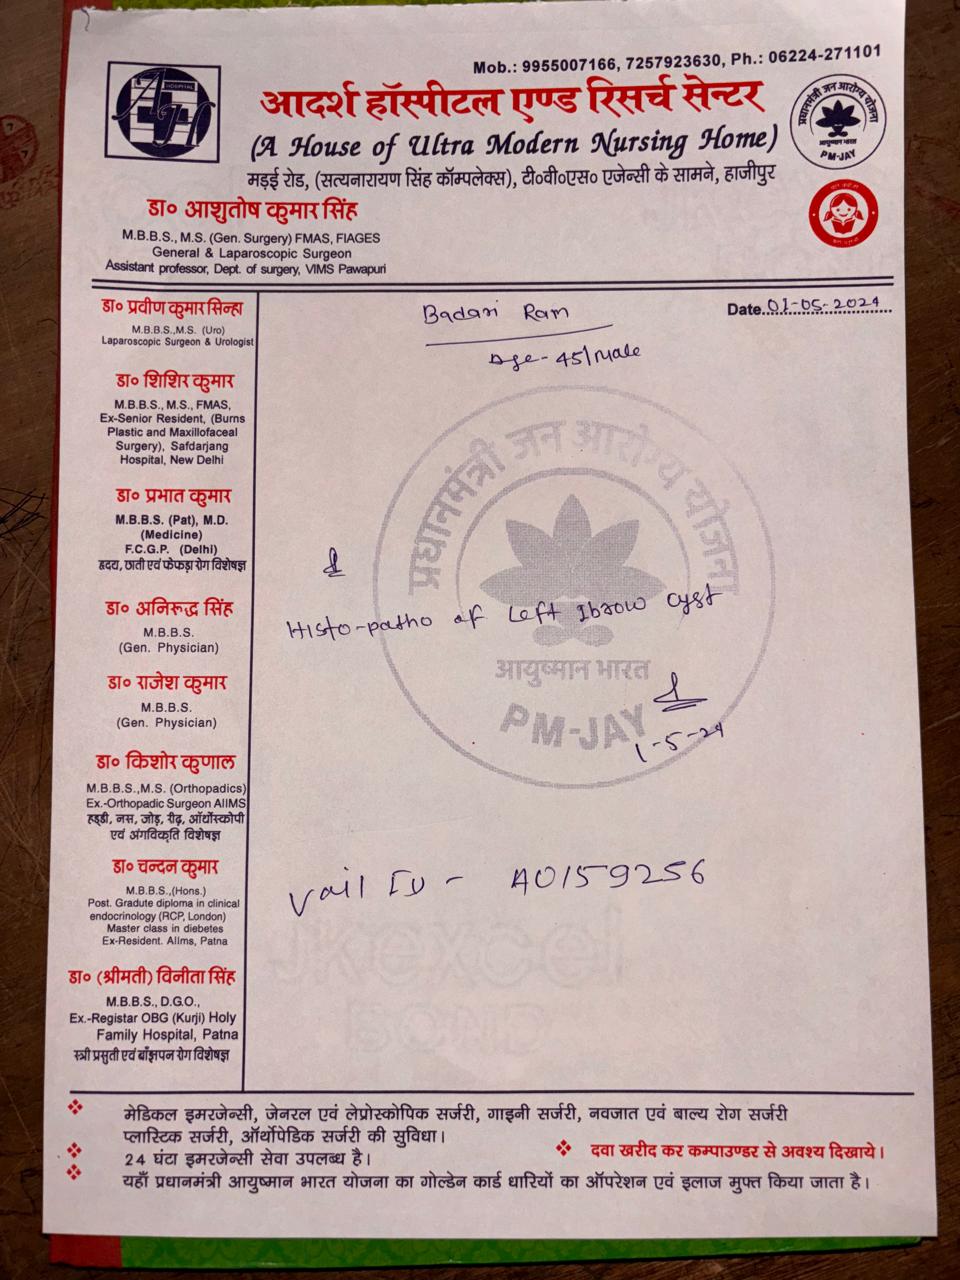 Mob.: 9955007166, 7257923630, Ph.: 06224-271101
HOSPITAL
आदर्श हॉस्पीटल एण्ड रिसर्च सेन्टर
(A House of Ultra Modern Nursing Home)
मड़ई रोड, (सत्यनारायण सिंह कॉम्पलेक्स), टी०वी०एस० एजेन्सी के सामने, हाजीपुर
प्रधानमंत्री जन आरोग्य योजना
आयुष्मान भारत
PM-JAY
डा० आशुतोष कुमार सिंह
M.B.B.S., M.S. (Gen. Surgery) FMAS, FIAGES
General & Laparoscopic Surgeon
Assistant professor, Dept. of surgery, VIMS Pawapuri
Badari Ram
Date..01-05-2024
Age - 45/Male
डा० प्रवीण कुमार सिन्हा
M.B.B.S.,M.S. (Uro)
Laparoscopic Surgeon & Urologist
डा० शिशिर कुमार
M.B.B.S., M.S., FMAS,
Ex-Senior Resident, (Burns
Plastic and Maxillofaceal
Surgery), Safdarjang
Hospital, New Delhi
डा० प्रभात कुमार
M.B.B.S. (Pat), M.D.
(Medicine)
F.C.G.P. (Delhi)
हृदय, छाती एवं फेफड़ा रोग विशेषज्ञ
डा० अनिरूद्ध सिंह
M.B.B.S.
(Gen. Physician)
डा० राजेश कुमार
M.B.B.S.
(Gen. Physician)
डा० किशोर कुणाल
M.B.B.S.,M.S. (Orthopadics)
Ex.-Orthopadic Surgeon AIIMS
हड्डी, नस, जोड़, रीढ़, ऑर्थोस्कोपी
एवं अंगविकृति विशेषज्ञ
डा० चन्दन कुमार
M.B.B.S.,(Hons.)
Post. Gradute diploma in clinical
endocrinology (RCP, London)
Master class in diebetes
Ex-Resident. AIIms, Patna
डा० (श्रीमती) विनीता सिंह
M.B.B.S., D.G.O.,
Ex.-Registar OBG (Kurji) Holy
Family Hospital, Patna
स्त्री प्रसुती एवं बाँझपन रोग विशेषज्ञ
प्रधानमंत्री जन आरोग्य योजना
Histo-patho of Left Ibrow cyst
आयुष्मान भारत
PM-JAY
1-5-24
Vail ID - A0159256
JKexcel
BOND
मेडिकल इमरजेन्सी, जेनरल एवं लेप्रोस्कोपिक सर्जरी, गाइनी सर्जरी, नवजात एवं बाल्य रोग सर्जरी
प्लास्टिक सर्जरी, ऑर्थोपेडिक सर्जरी की सुविधा।
24 घंटा इमरजेन्सी सेवा उपलब्ध है।
दवा खरीद कर कम्पाउण्डर से अवश्य दिखाये।
यहाँ प्रधानमंत्री आयुष्मान भारत योजना का गोल्डेन कार्ड धारियों का ऑपरेशन एवं इलाज मुफ्त किया जाता है।